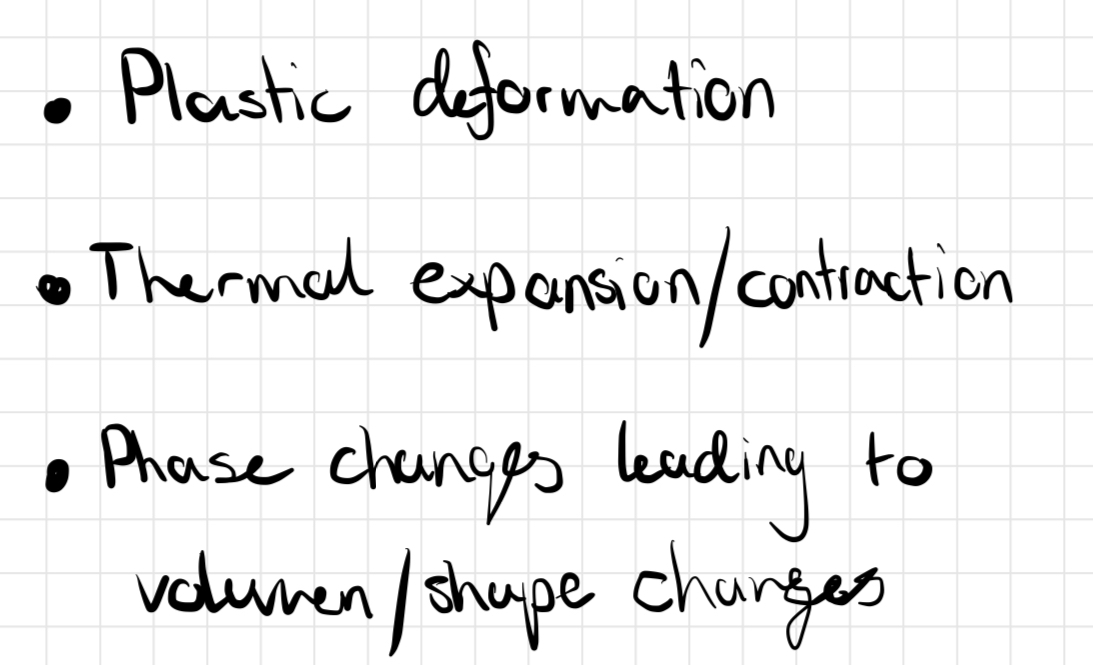 • Plastic deformation
• Thermal expansion/contraction
• Phase changes leading to
volumen/shape changes